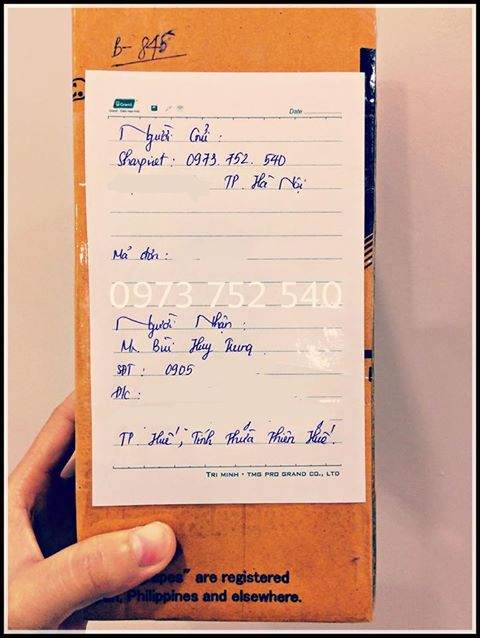 B-845
C.
Grand
Date
Người Gửi :
Sharpiret : 0973.752.540
TP. Hà Nội
Mã đơn :
0973 752 540
Người Nhận :
Mr. Bùi Huy Trung
SĐT : 0905
Đ/c :
TP Huế, Tỉnh Thừa Thiên Huế.
TRI MINH - TMG PRO GRAND CO., LTD
apes" are registered
Philippines and elsewhere.